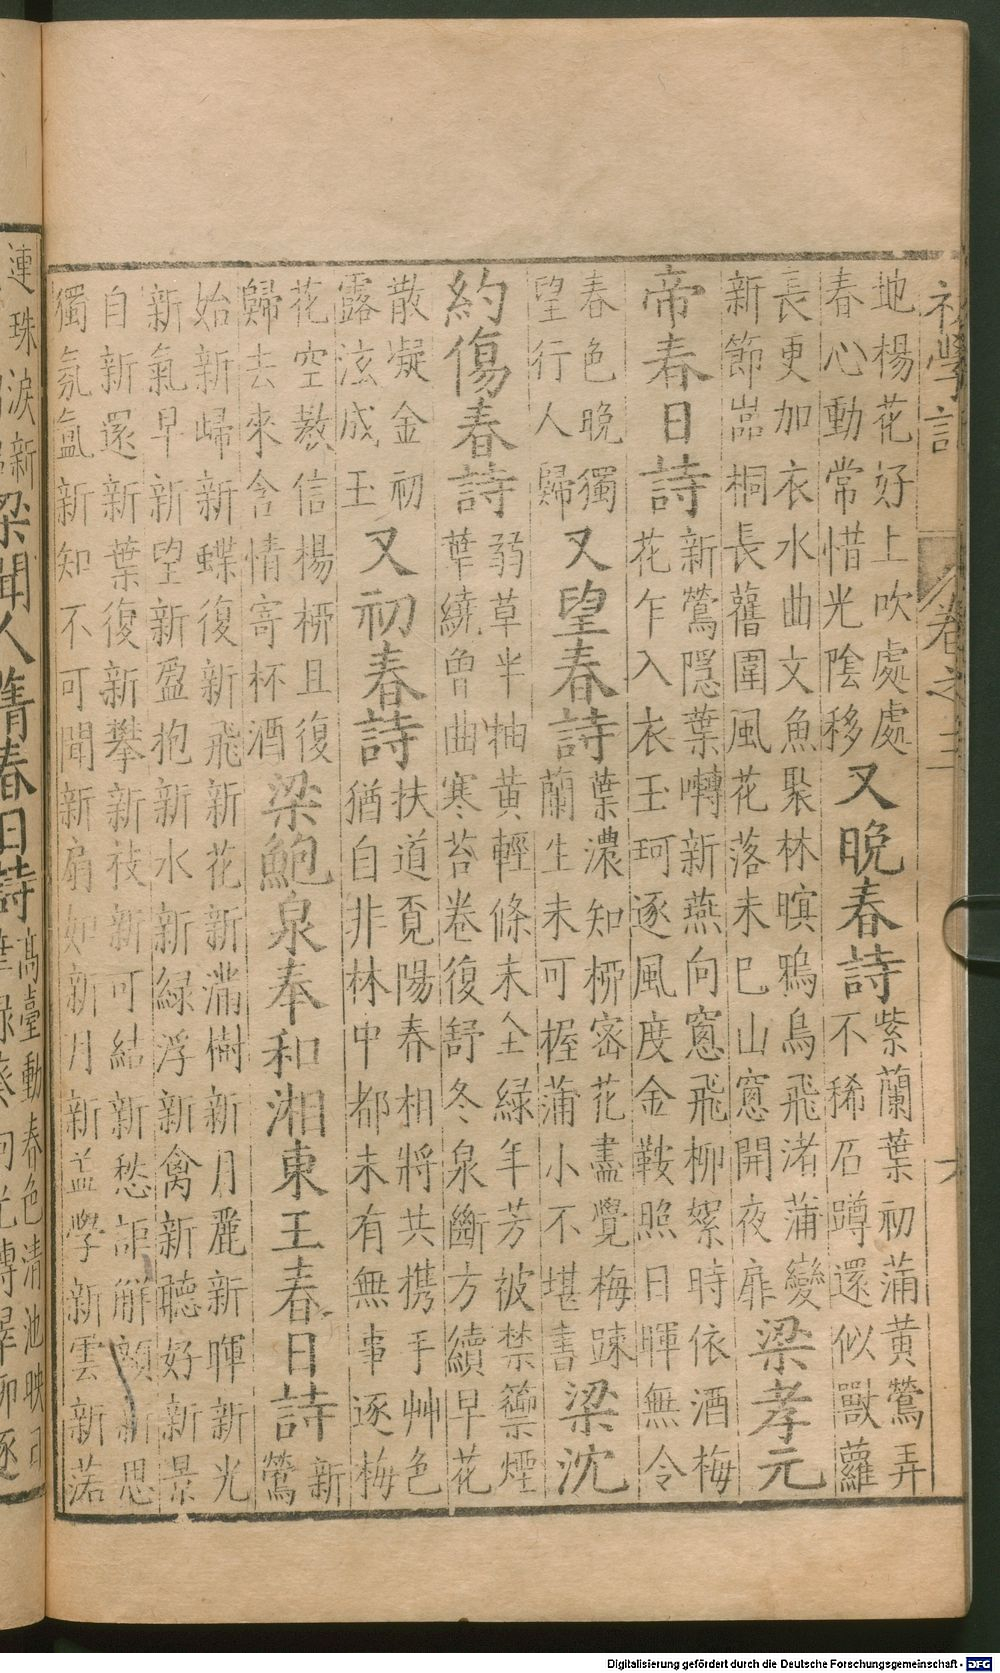 初學記 卷之三 六
地楊花好上吹處處
春心動常惜光陰移
又晚春詩
紫蘭葉初蒲黃鶯弄
不稀石蹲還似獸蘿
長更加衣水曲文魚聚林暝鴉鳥飛渚蒲變
新節嵓桐長舊圍風花落未已山窻開夜扉
梁孝元
帝春日詩
新鶯隱葉囀新燕向窻飛柳絮時依酒梅
花乍入衣玉珂逐風度金鞍照日暉無令
春色晚獨
望行人歸
又望春詩
葉濃知栁密花盡覺梅踈
蘭生未可握蒲小不堪書
梁沈
約傷春詩
弱草半抽黃輕條未全綠年芳被禁籞煙
華繞曾曲寒苔卷復舒冬泉斷方續早花
散凝金初
露泫成玉
又初春詩
扶道覓陽春相將共携手艸色
猶自非林中都未有無事逐梅
花空教信楊栁且復
歸去來含情寄杯酒
梁鮑泉奉和湘東王春日詩
新
鶯
始新歸新蝶復新飛新花新滿樹新月麗新暉新光
新氣早新望新盈抱新水新綠浮新禽新聽好新景
自新還新葉復新攀新枝新可結新愁詎解顏新思
獨氛氳新知不可聞新扇如新月新盖學新雲新落
連珠淚新
梁聞人蒨春日詩
高臺動春色清池映日
華綠葵向光轉翠柳逐
Digitalisierung gefördert durch die Deutsche Forschungsgemeinschaft - DFG